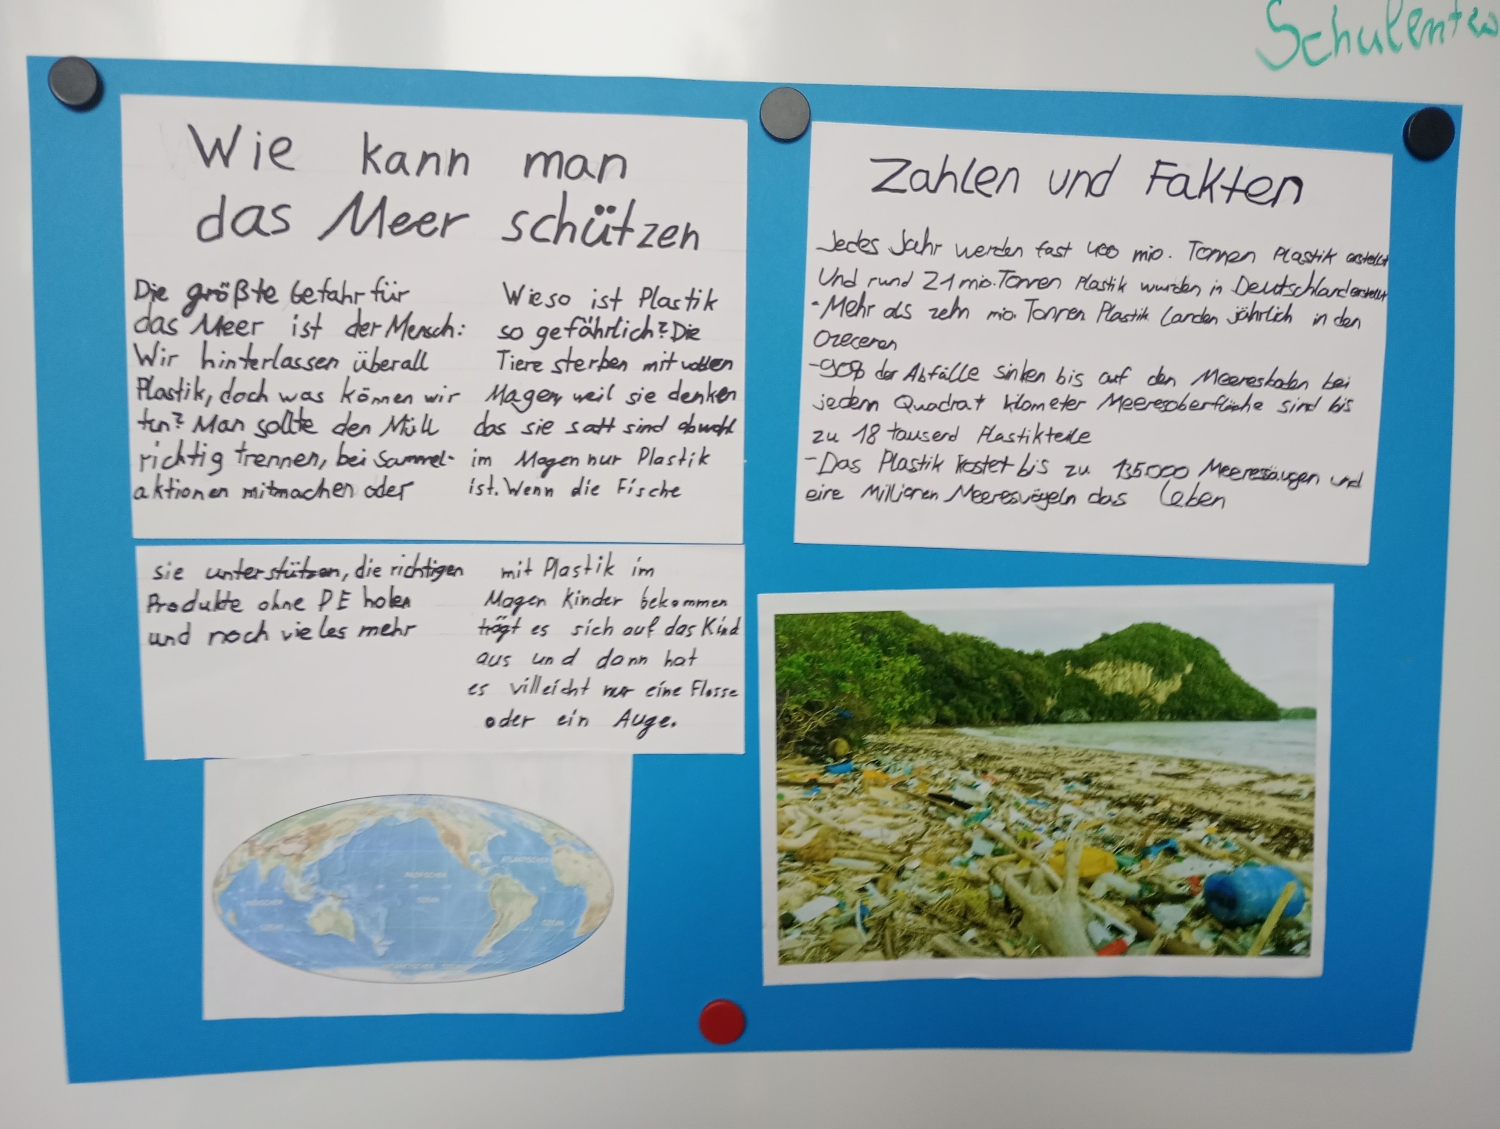 Schulentw
Wie kann man
das Meer schützen
Die größte Gefahr für
das Meer ist der Mensch:
Wir hinterlassen überall
Plastik, doch was können wir
tun? Man sollte den Müll
richtig trennen, bei Sammel-
aktionen mitmachen oder
sie unterstützen, die richtigen
Produkte ohne PE holen
und noch vieles mehr
Wieso ist Plastik
so gefährlich? Die
Tiere sterben mit vollen
Magen, weil sie denken
das sie satt sind obwohl
im Magen nur Plastik
ist. Wenn die Fische
mit Plastik im
Magen Kinder bekommen
trägt es sich auf das Kind
aus und dann hat
es villeicht nur eine Flosse
oder ein Auge.
Zahlen und Fakten
Jedes Jahr werden fast 400 mio. Tonnen Plastik erstellt
Und rund 21 mio. Tonnen Plastik wurden in Deutschland erstellt
- Mehr als zehn mio. Tonnen Plastik landen jährlich in den
Ozeanen
- 90% der Abfälle sinken bis auf den Meeresboden bei
jedem Quadrat kilometer Meeresoberfläche sind bis
zu 18 tausend Plastikteile
- Das Plastik kostet bis zu 135000 Meeressäugen und
eine Millionen Meeresvögeln das Leben
ATLANTISCHER
PAZIFISCHER
OZEAN
INDISCHER
OZEAN
OZEAN